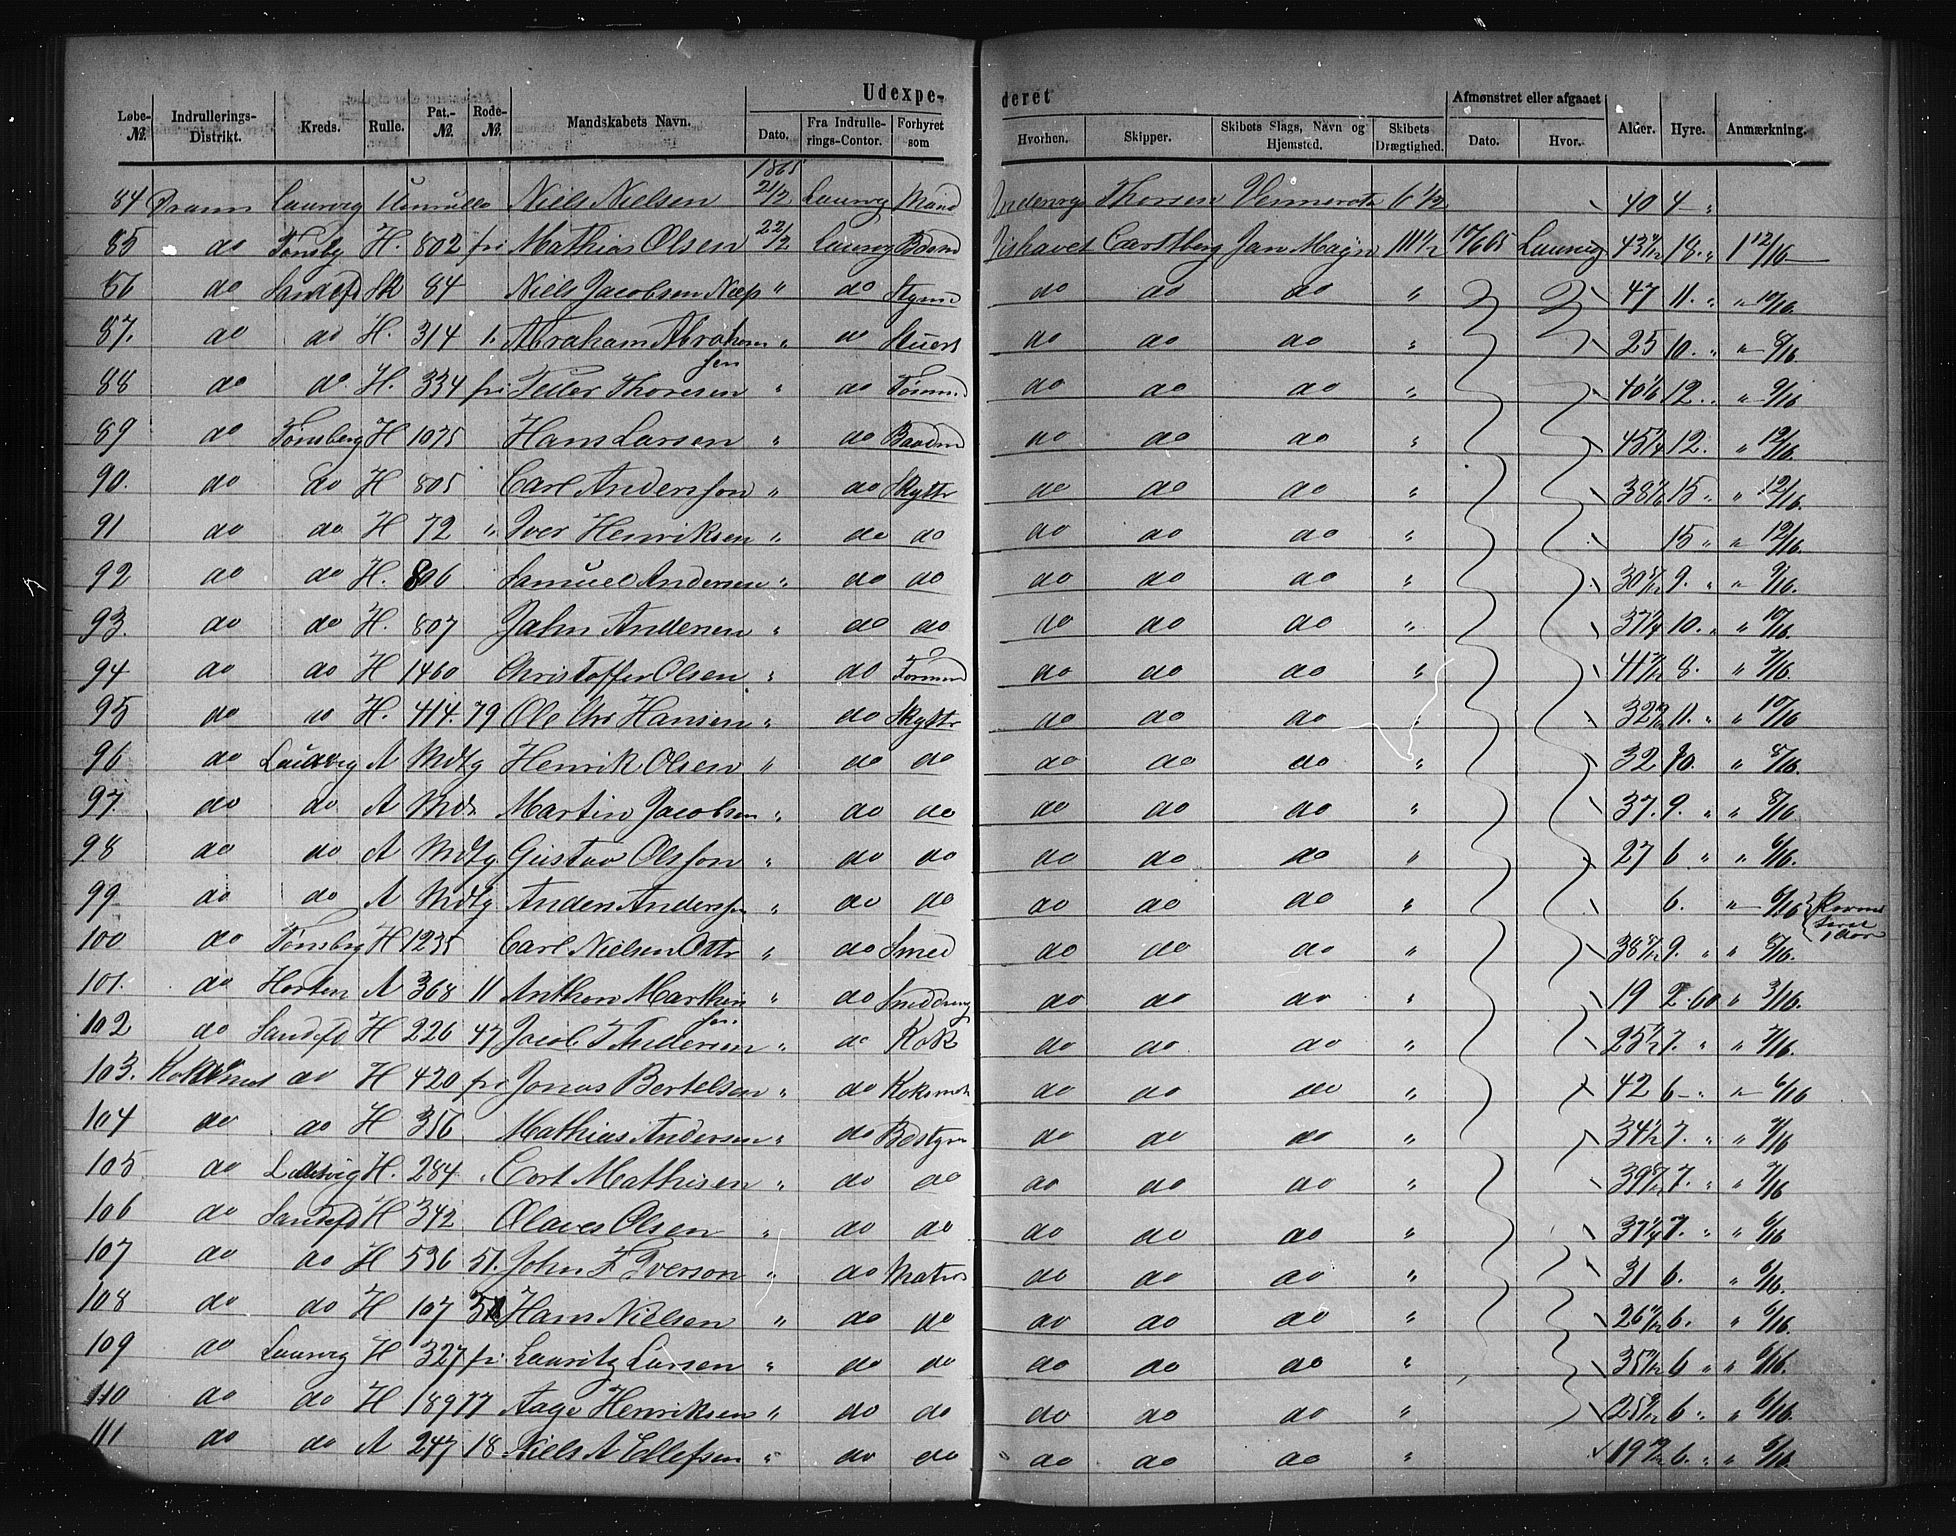 Udexpederet
Afmønstret eller afgaaet
Løbe-№. Indrullerings-Distrikt. Kreds. Rulle. Pat.-№. Rode-№. Mandskabets Navn. Dato. Fra Indrullerings-Contor. Forhyret som Hvorhen. Skipper. Skibets Slags, Navn og Hjemsted. Skibets Drægtighed. Dato. Hvor. Alder. Hyre. Anmærkning.
1865
84 Dramn Laurvig Niels Nielsen 21/2 Laurvig Mand Indenrigs Thorsen 6 1/2 40 4 "
85 do Tønsbg H. 802 fri Mathias Olsen 22/2 Laurvig Ishavet Castberg Jan Mayn 111 1/2 Laurvig 18. " 1 12/16
86 do Sandefd Sk 84 Niels Jacobsen " do Styrmd do do do " 47 11. " " 10/16
87. do do H. 314 1. Abraham Abrahamsen " do Stuert do do do " 25 10. " " 8/16
88 do do H. 334 fri Peder Thoresen " do Tømmd do do do " 40 1/6 12. " " 9/16
89 do Tønsberg H 1035 Hans Larsen " do Baadmd do do do " 45 3/4 12. " 12/16
90. do do H 805 Carl Andersson " do Skyttr do do do " 15 " " 12/16
91 do do H 72 " Iver Henriksen " do do do do do " 15 " " 12/16
92 do do H. 806 Samuel Andersen " do do do do do " 9. " " 9/16
93. do do H. 807 John Andersen " do do do do do " 37 1/4 10. " " 10/16
94 do do H 1460 Christoffer Olsen " do Tømmd do do do " 8. " 7/16
95 do do H. 414. 79 Ole Chr Hansen " do Skyttr do do do " 11. " " 10/16
96 do Laurvig A Mdtg Henrik Olsen " do do do do do " 32 10. " 8/16.
97. do do A Mdt Martin Jacobsen " do do do do do " 37. 9. " " 8/16
98 do do A Mdtg. Gustav Olsson " do do do do do " 27 6 " " 6/16.
99 do do A Mdtg Anders Andersson " do do do do do " 6. " 6/16
100 do Tønsbg H 1235 Carl Nielsen Ottr " do Smed do do do " 9. " " 8/16.
101. do Horten A 368 11 Anthon Marthinsen " do Smeddreng do do do " 19 2.60 " 3/16.
102 do Sandefd H 226 47 Jacob T Andersen " do Kok do do do " 7. " " 7/16.
103. do H 420 fri Jonas Bertelsen " do Koksmat do do do " 42 6 " " 6/16
104 do do H 356 Mathias Andersen " do Bestyrr do do do " 34 1/2 7. " " 7/16
105 do Laurvig H. 284 " Cort Mathisen " do do do do do " 7. " " 7/16
106 do Sandefd H 342 Olaves Olsen " do do do do do " 37 1/4 7. " " 6/16
107 do do H 536 51. John F Iverson " do Matros do do do " 31 6. " 6/16.
108 do do H 107 Hans Nielsen " do do do do do " 6. " 6/16.
109 do Laurvig H 327 fri Lauritz Larsen " do do do do do " 6 " " 6/16.
110 do do H 189 77 Aage Henriksen " do do do do do " 6 " " 6/16.
111 do do A 247 18 Niels A Ellefsen " do do do do do " 6. " " 6/16